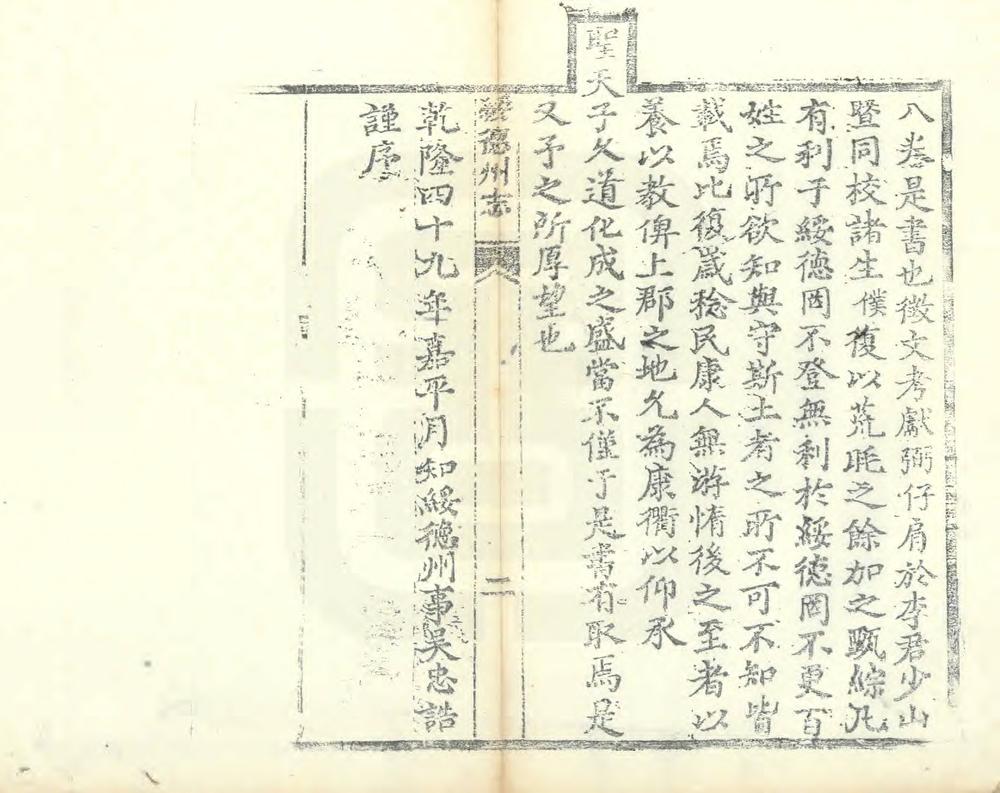 八卷是書也徵文考獻弼仔肩於李君少山
暨同校諸生僕復以荒眊之餘加之甄綜凡
有利于綏德罔不登無利於綏德罔不更百
姓之所欲知與守斯土者之所不可不知皆
載焉比復歲稔民康人無游惰後之至者以
養以教俾上郡之地久為康衢以仰承
聖天子久道化成之盛當不僅于是書有取焉是
又予之所厚望也
綏德州志 二
乾隆四十九年嘉平月知綏德州事吳忠誥
謹序